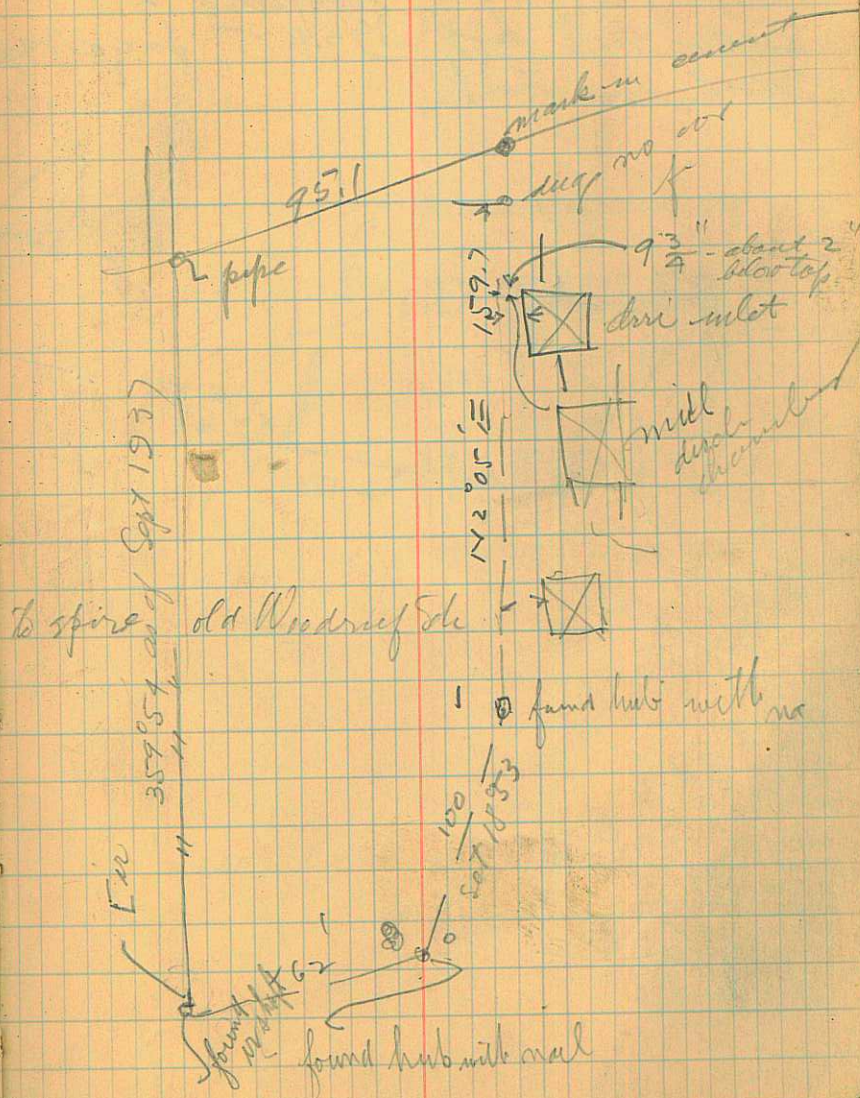 mark in cement
95.1
dug no
pipe
9 3/4" - about 2"
below top
159.7
inlet
mill
N 2° 05' E
359° 54 as of Sept 1937
to spire old Woodruf Sch
1 found hub with
100
Set 1853
62
0
found
found hub with nail